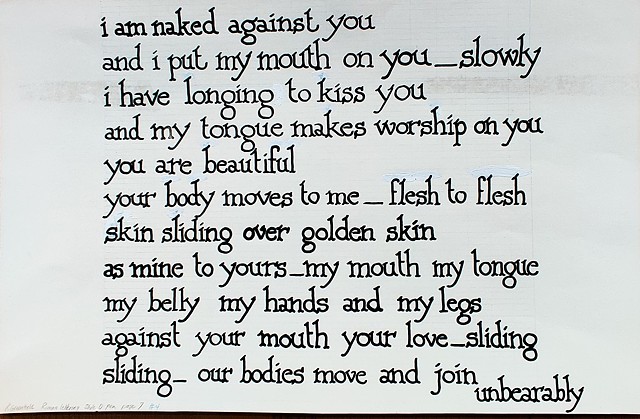 i am naked against you
and i put my mouth on you_slowly
i have longing to kiss you
and my tongue makes worship on you
you are beautiful
your body moves to me_flesh to flesh
skin sliding over golden skin
as mine to yours_my mouth my tongue
my belly my hands and my legs
against your mouth your love_sliding
sliding_ our bodies move and join
unbearably